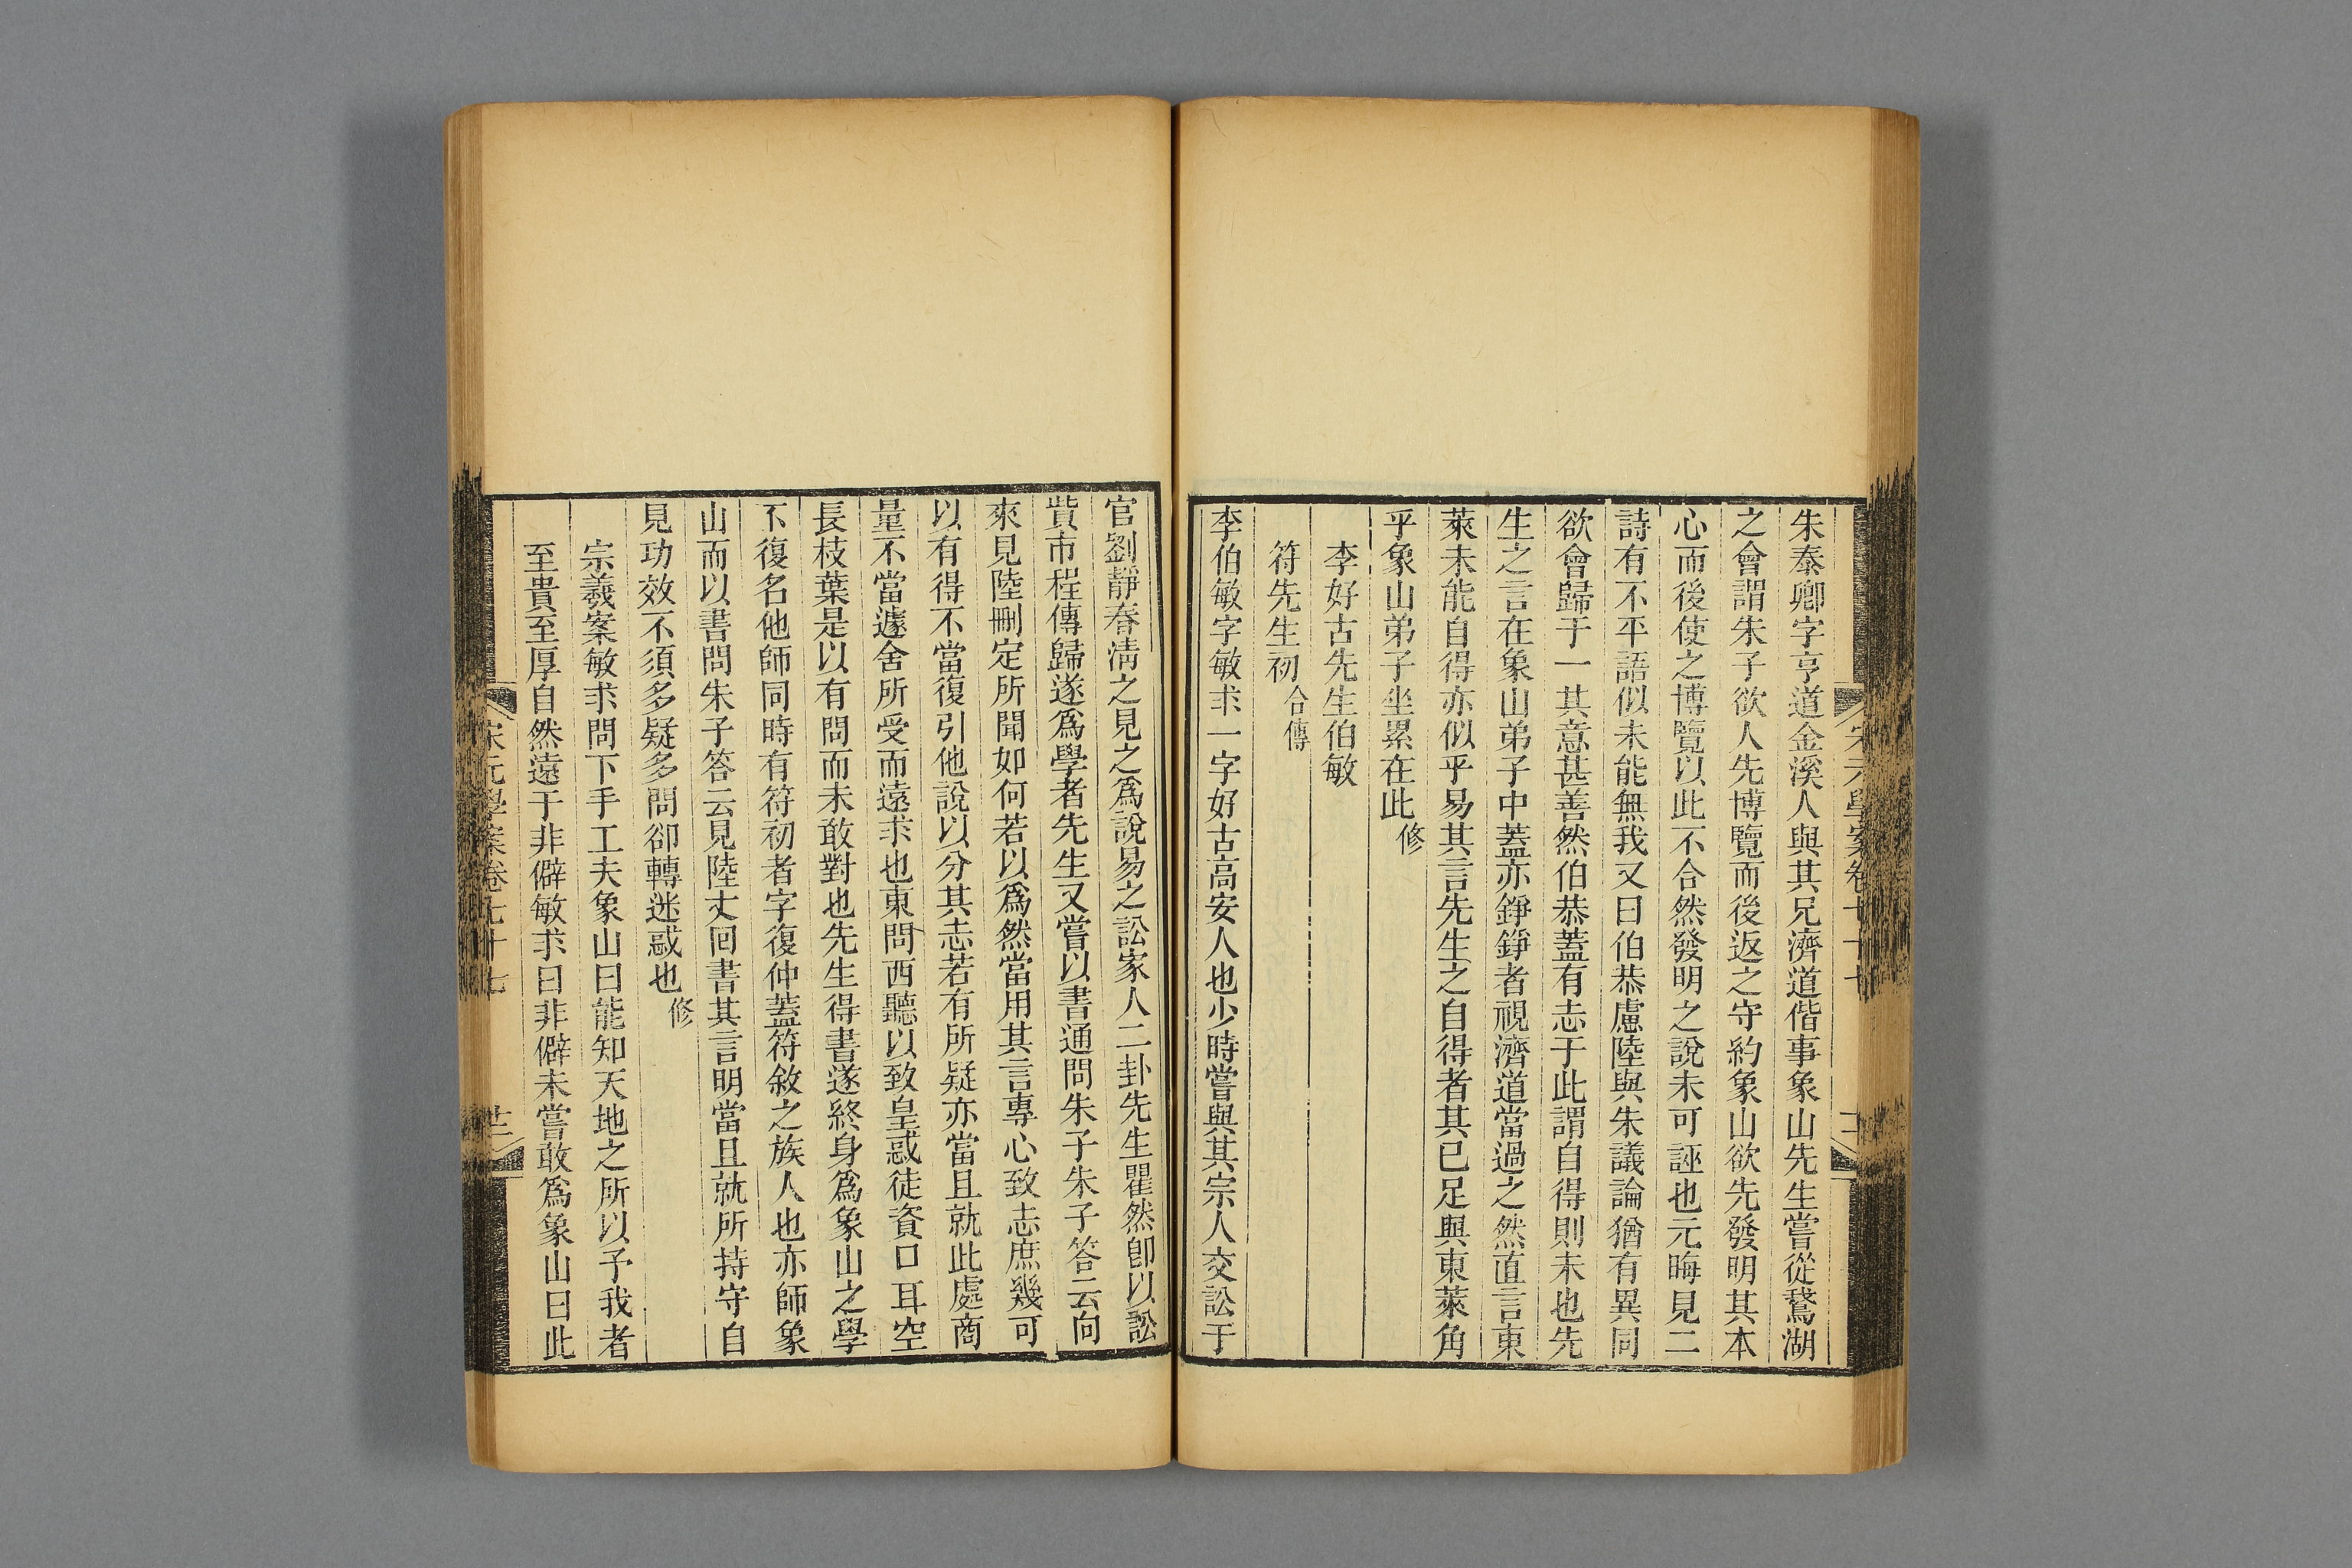 朱泰卿字亨道金溪人與其兄濟道偕事象山先生嘗從鵞湖
之會謂朱子欲人先博覽而後返之守約象山欲先發明其本
心而後使之博覽以此不合然發明之說未可誣也元晦見二
詩有不平語似未能無我又曰伯恭慮陸與朱議論猶有異同
欲會歸于一其意甚善然伯恭蓋有志于此謂自得則未也先
生之言在象山弟子中蓋亦錚錚者視濟道當過之然直言東
萊未能自得亦似乎易其言先生之自得者其已足與東萊角
乎象山弟子坐累在此修
李好古先生伯敏
符先生初合傳
李伯敏字敏求一字好古高安人也少時嘗與其宗人交訟于
官劉靜春淸之見之爲說易之訟家人二卦先生瞿然卽以訟
貲市程傳歸遂爲學者先生又嘗以書通問朱子朱子答云向
來見陸刪定所聞如何若以爲然當用其言專心致志庶幾可
以有得不當復引他說以分其志若有所疑亦當且就此處商
量不當遽舍所受而遠求也東問西聽以致皇惑徒資口耳空
長枝葉是以有問而未敢對也先生得書遂終身爲象山之學
不復名他師同時有符初者字復仲蓋符敘之族人也亦師象
山而以書問朱子答云見陸丈回書其言明當且就所持守自
見功效不須多疑多問卻轉迷惑也修
宗羲案敏求問下手工夫象山曰能知天地之所以予我者
至貴至厚自然遠于非僻敏求曰非僻未嘗敢爲象山曰此
宋元學案卷七十七